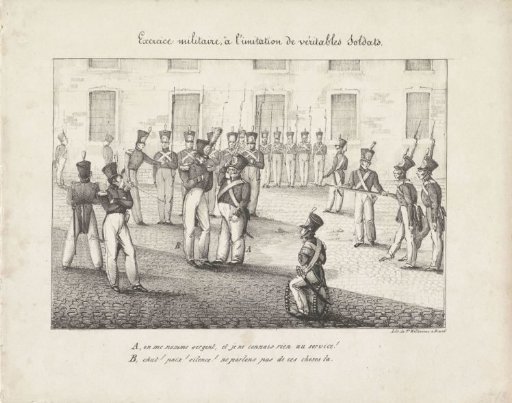 Exercice militaire, à l'imitation de véritables Soldats.
B
A
Lith. de
A, on me nomme sergent, et je ne connais rien au service!
B, chut! paix! silence! ne parlons pas de ces choses la.